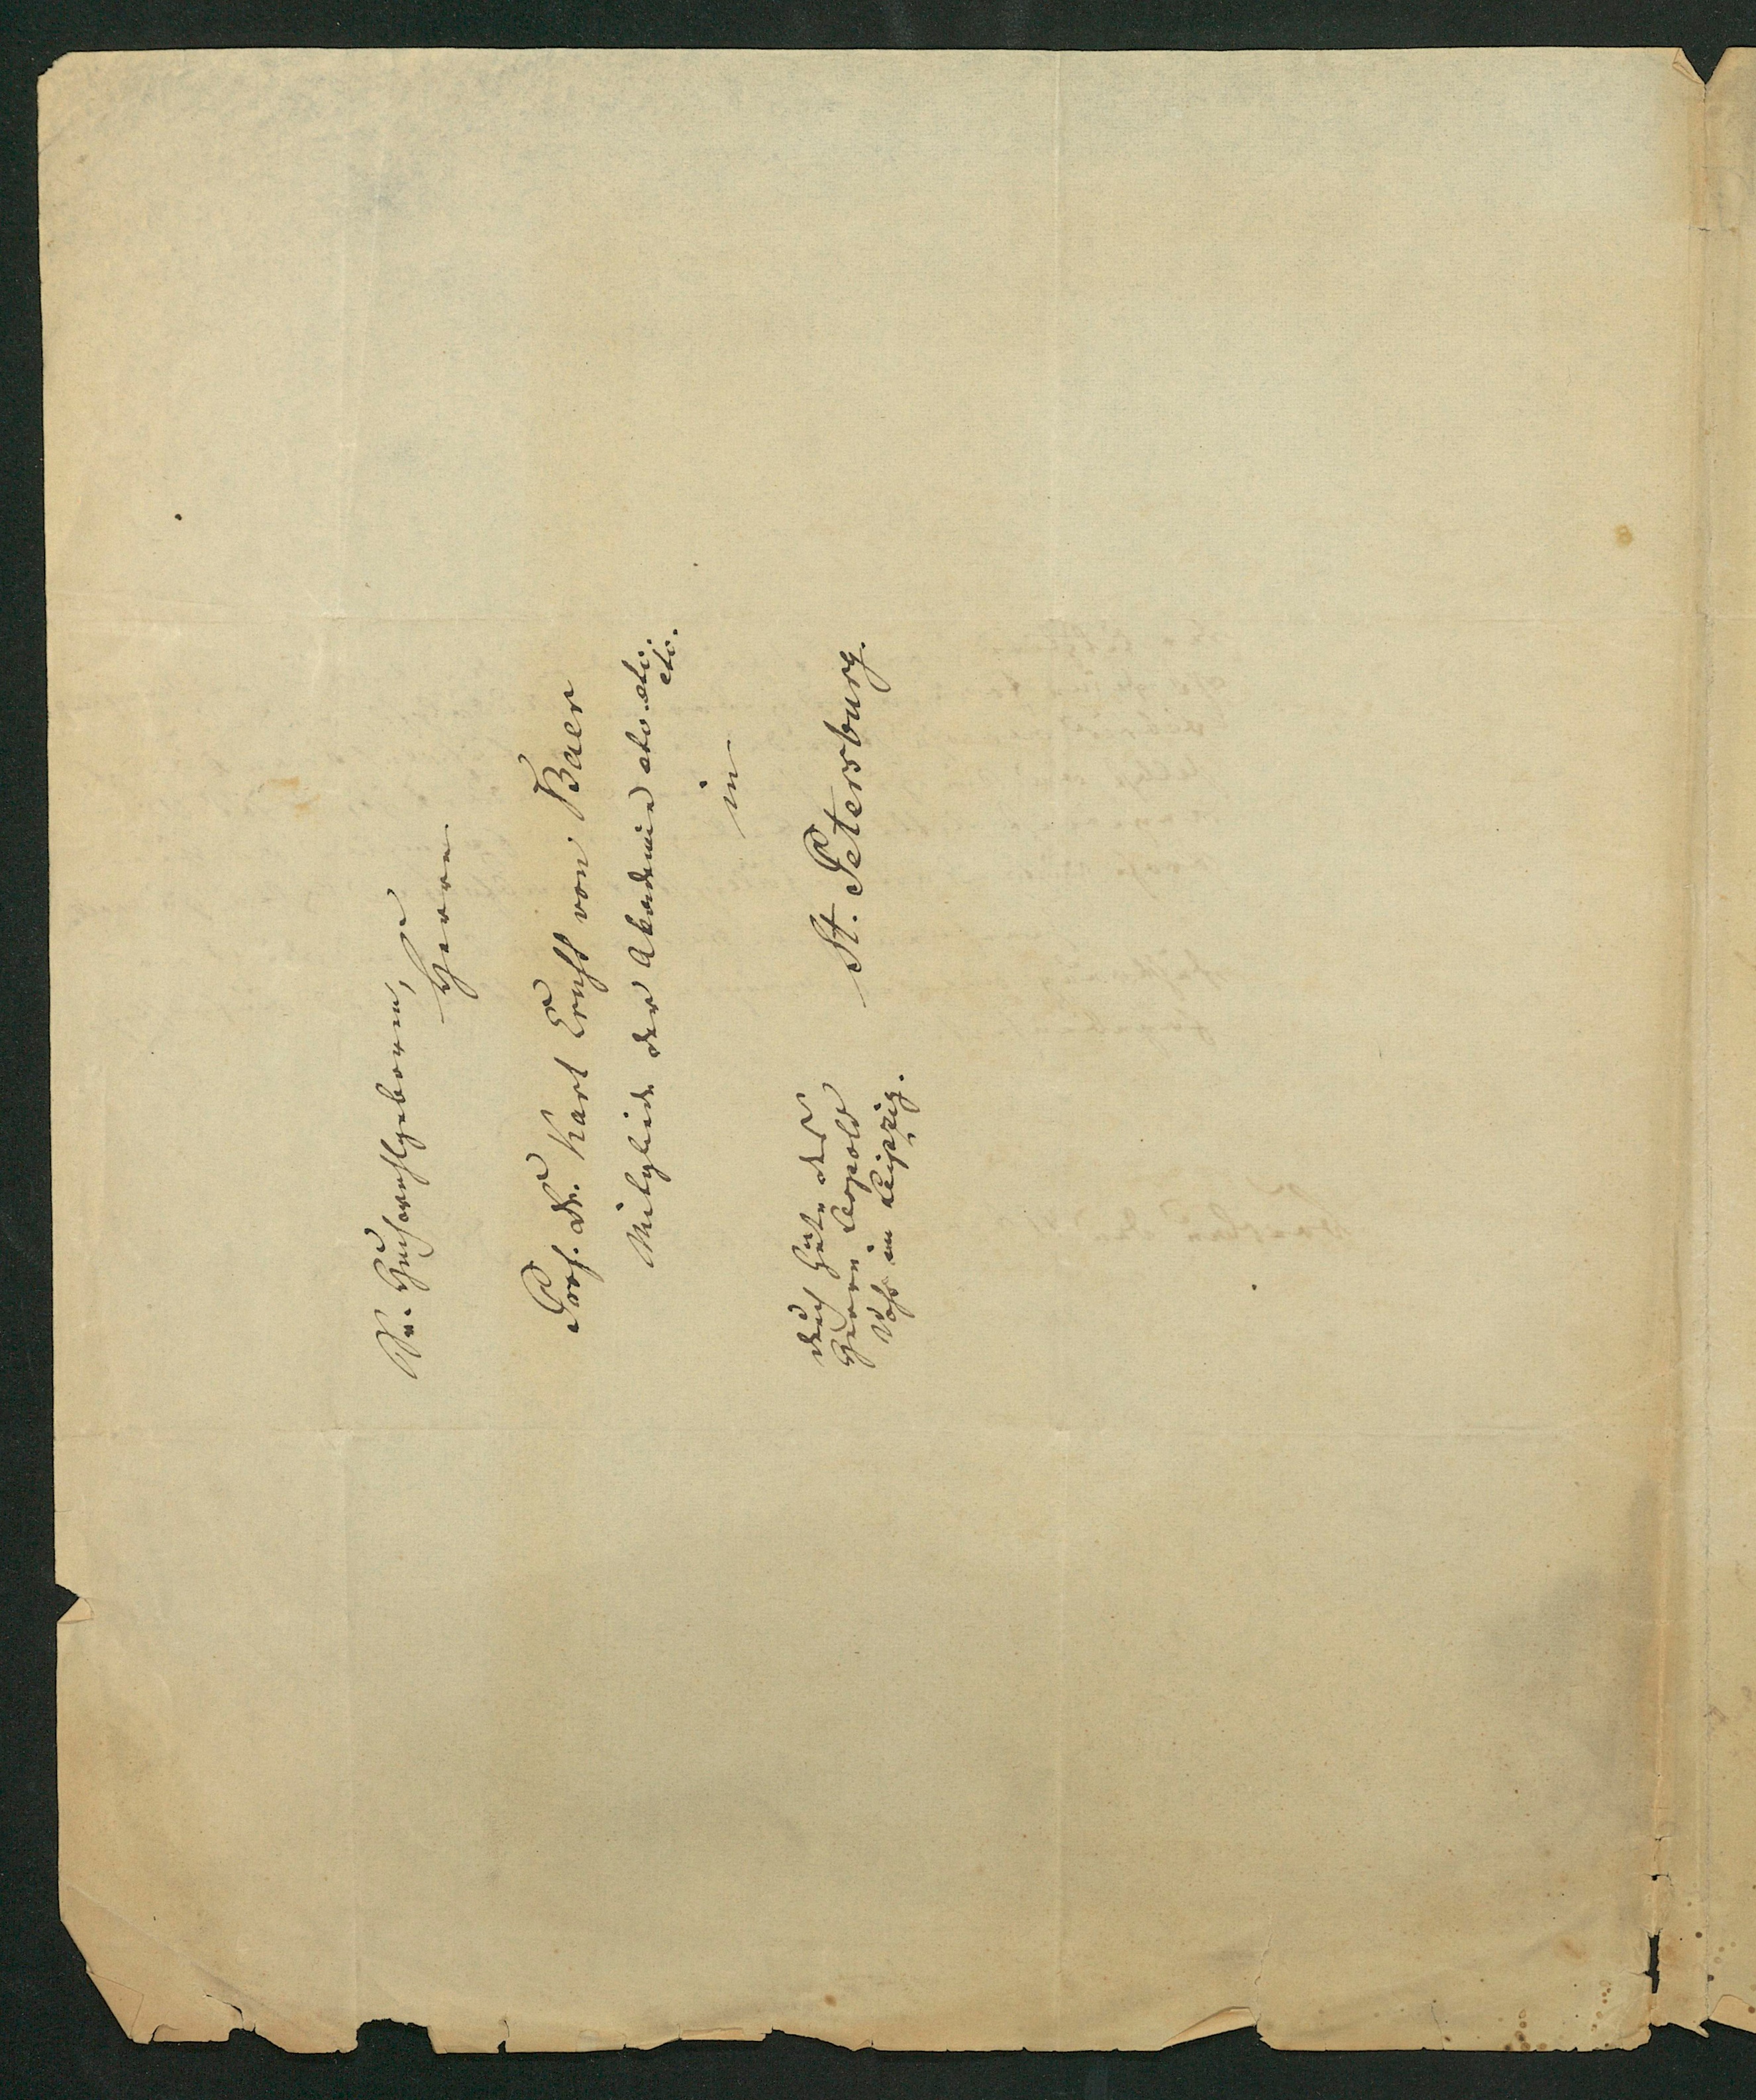 Sr. Hochwohlgeboren,
Herrn
Prof. Dr. Karl Ernst von Baer
Mitgliede der Akademie etc. etc.
etc.
in
St. Petersburg.
durch Güte des
Herrn Leopold
Voß in Leipzig.